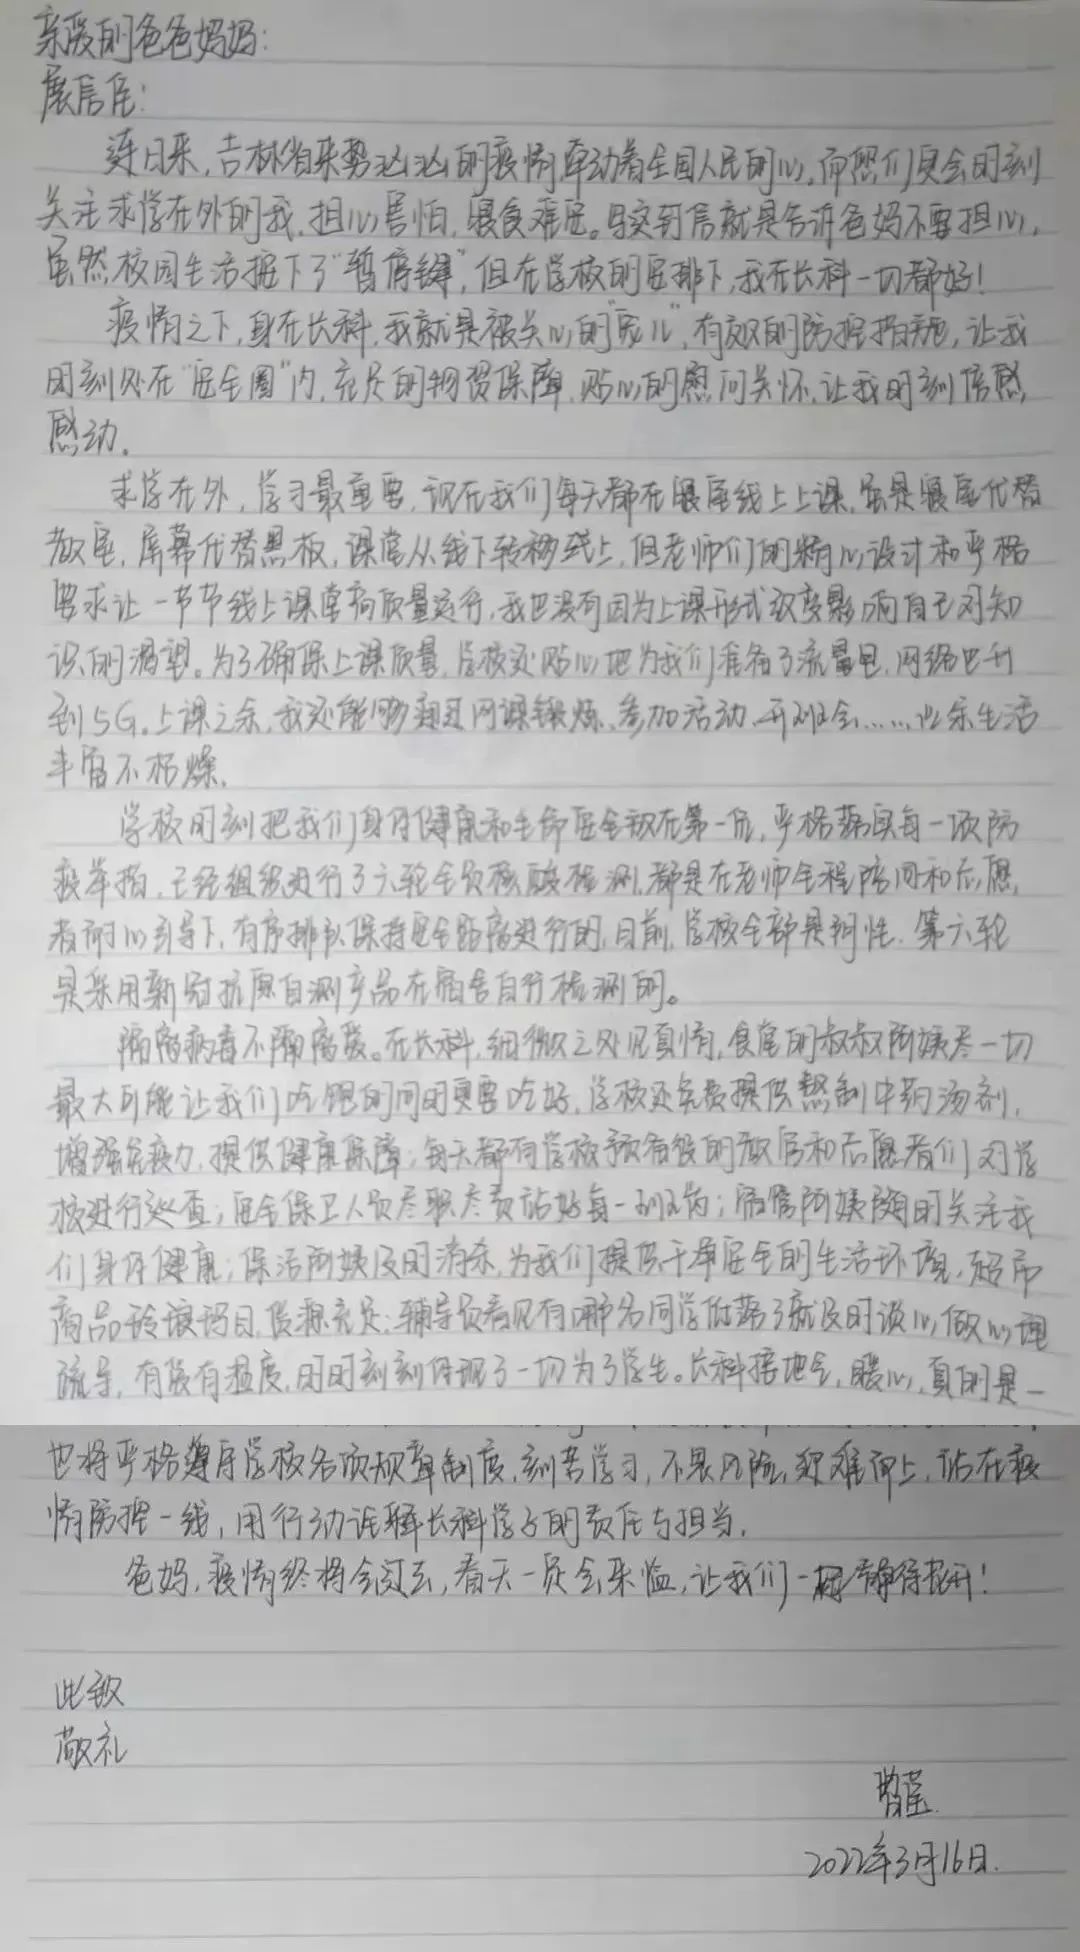 亲爱的爸爸妈妈：
展信佳：
连日来，吉林省来势汹汹的疫情，牵动着全国人民的心，而您们更会时刻
关注求学在外的我，担心害怕，寝食难安。写这封信就是告诉爸妈不要担心，
虽然校园生活按下了“暂停键”，但在学校的安排下，我在长科一切都好！
疫情之下，身在长科，我就是被关心的“宠儿”，有效的防控措施，让我
时刻处在“安全圈”内，充足的物资保障，贴心的慰问关怀，让我时刻倍感
感动。
求学在外，学习最重要，现在我们每天都在寝室线上上课，虽是寝室代替
教室，屏幕代替黑板，课堂从线下转移线上，但老师们的精心设计和严格
要求让一节节线上课堂高质量运行，我也没有因为上课形式改变影响自己对知
识的渴望。为了确保上课质量，学校还贴心地为我们准备了流量包，网络也升
到5G。上课之余，我还能够通过网课锻炼、参加活动、开班会……业余生活
丰富不枯燥。
学校时刻把我们身体健康和生命安全放在第一位，严格落实每一项防
疫举措，已经组织进行了六轮全员核酸检测，都是在老师全程陪同和志愿
者耐心引导下，有序排队保持安全距离进行的，目前，学校全部是阴性，第六轮
是采用新冠抗原自测产品在宿舍自行检测的。
隔离病毒不隔离爱。在长科，细微之处见真情，食堂的叔叔阿姨尽一切
最大可能让我们吃饱的同时更要吃好，学校还免费提供熬制中药汤剂，
增强免疫力，提供健康保障；每天都有学校预备役的教官和志愿者们对学
校进行巡查；安全保卫人员尽职尽责站好每一班岗；宿管阿姨随时关注我
们身体健康；保洁阿姨及时消杀，为我们提供干净安全的生活环境，超市
商品玲琅玛目，货源充足；辅导员看见有哪名同学低落了就及时谈心，做心理
疏导，有爱有温度，时时刻刻体现了一切为了学生。长科接地气，暖心，真的是一
也将严格遵守学校各项规章制度，刻苦学习，不畏风险，迎难而上，站在疫
情防控一线，用行动诠释长科学子的责任与担当。
爸妈，疫情终将会过去，春天一定会来临，让我们一起静待花开！
此致
敬礼
2022年3月16日.